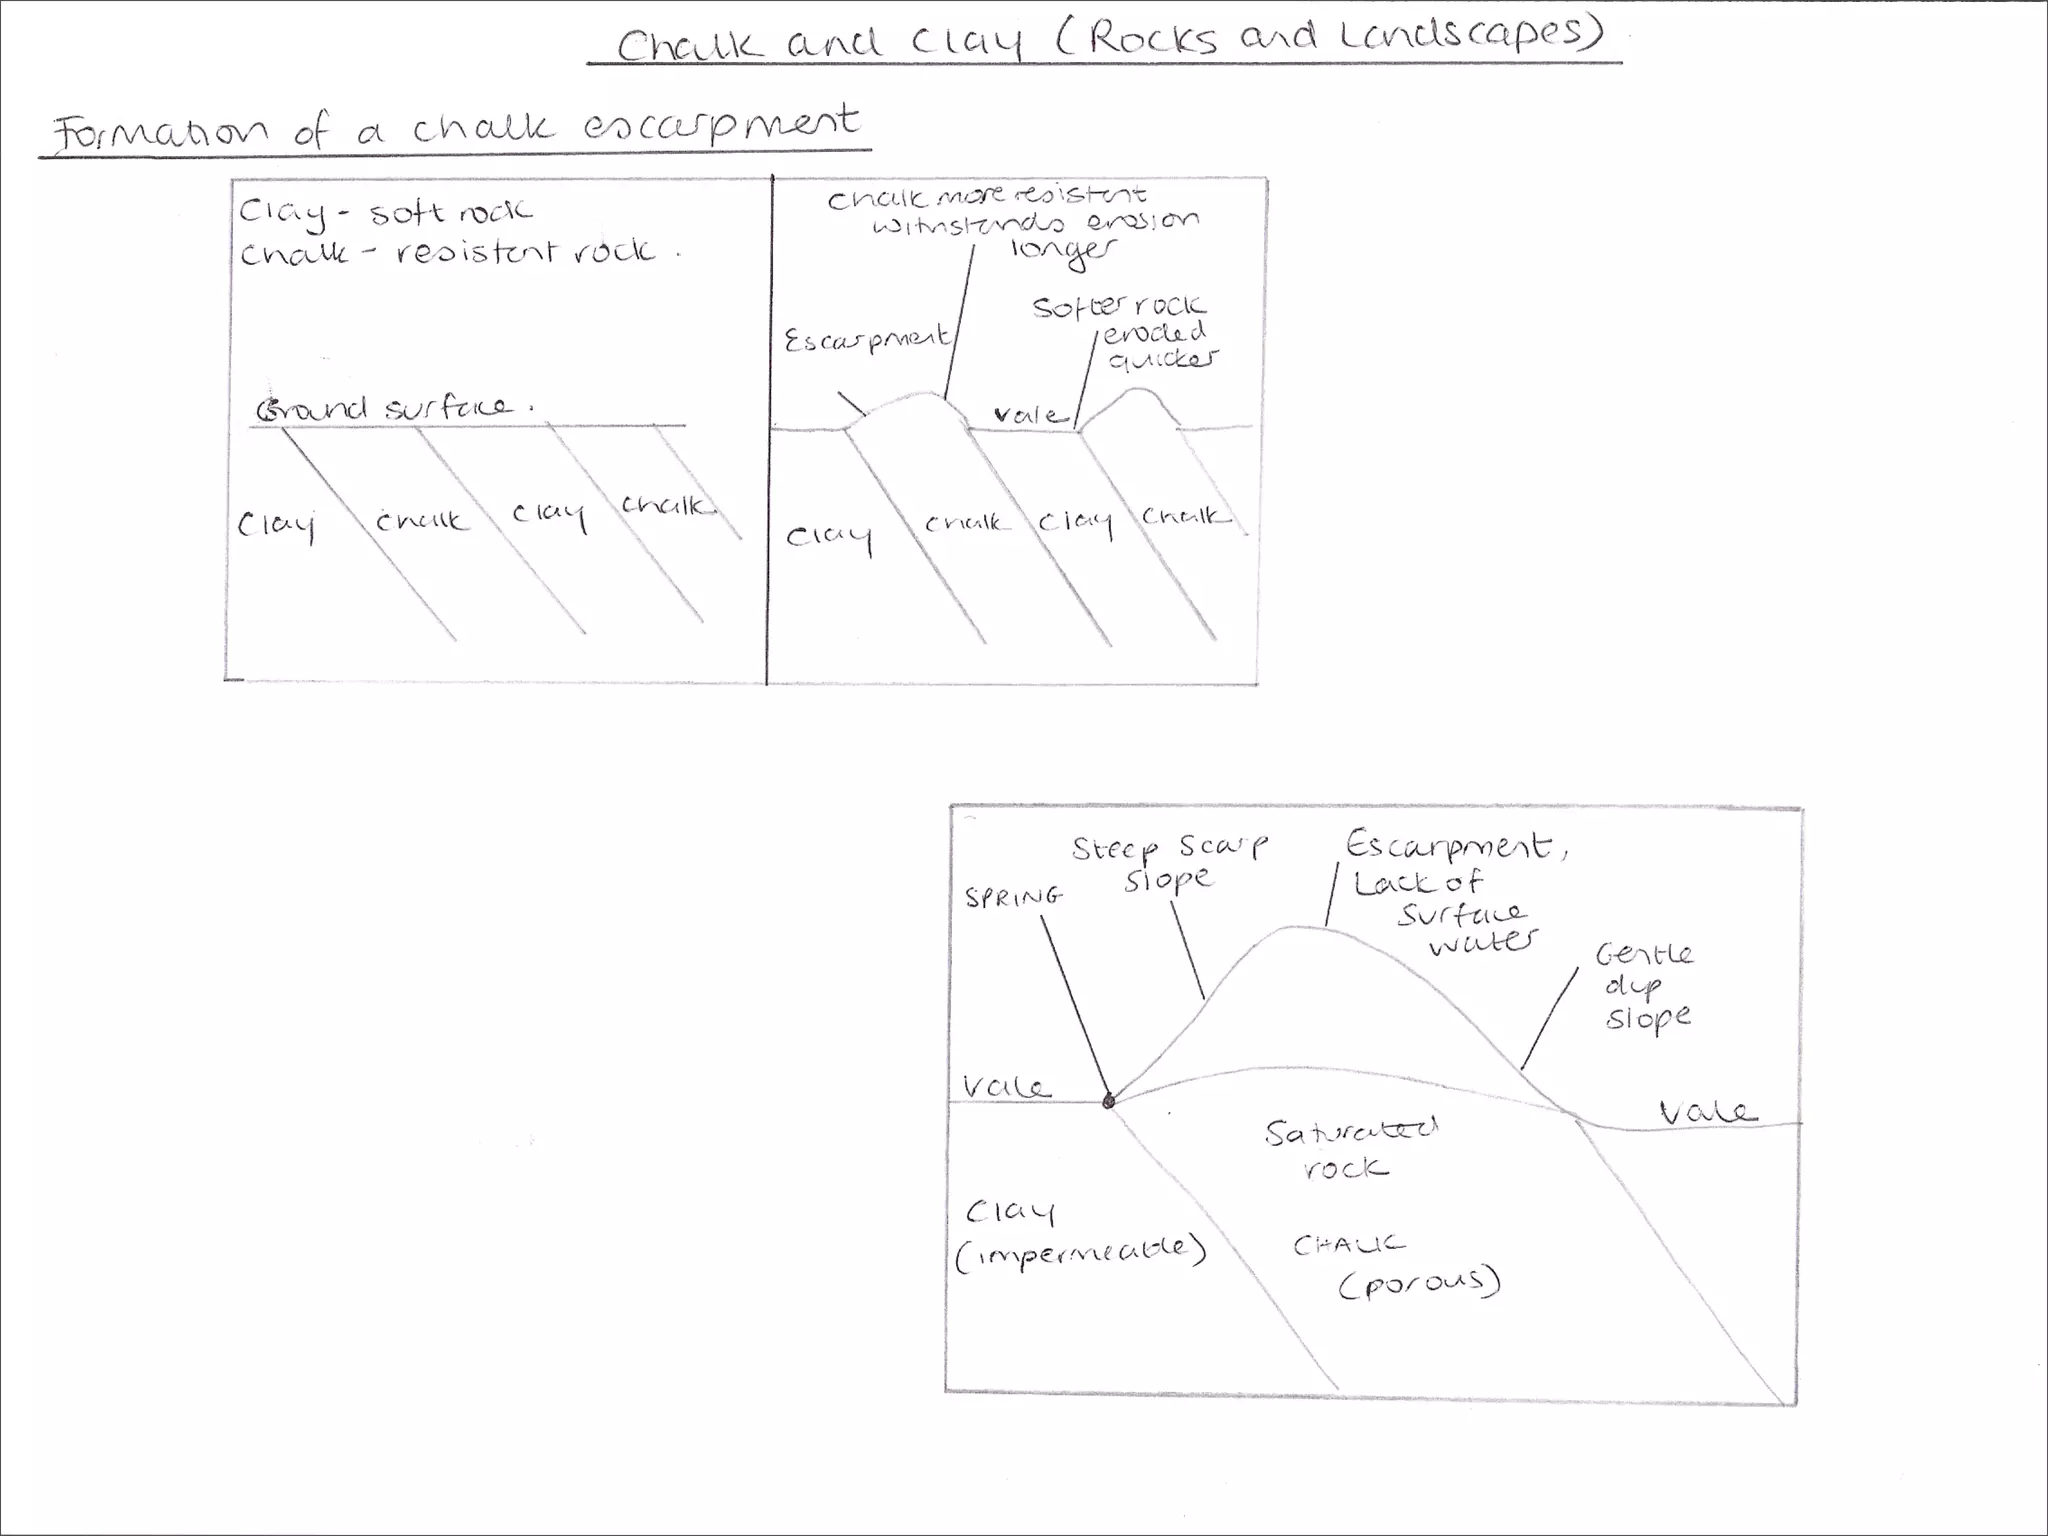 Chalk and Clay (Rocks and Landscapes)
Formation of a chalk escarpment
Clay - soft rock
Chalk - resistent rock.
Ground surface.
Clay
chalk
clay
chalk
Chalk more resistent
withstands erosion
longer
Softer rock
eroded
quicker
Escarpment
vale
Clay
chalk
clay
chalk
Steep scarp
slope
Escarpment,
Lack of
surface
water
SPRING
Gentle
dip
slope
Vale
Vale
Saturated
rock
Clay
(impermeable)
CHALK
(porous)